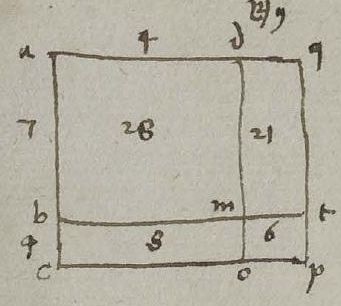 a 4 d q
7 28 21
b m t
8 6
c o p